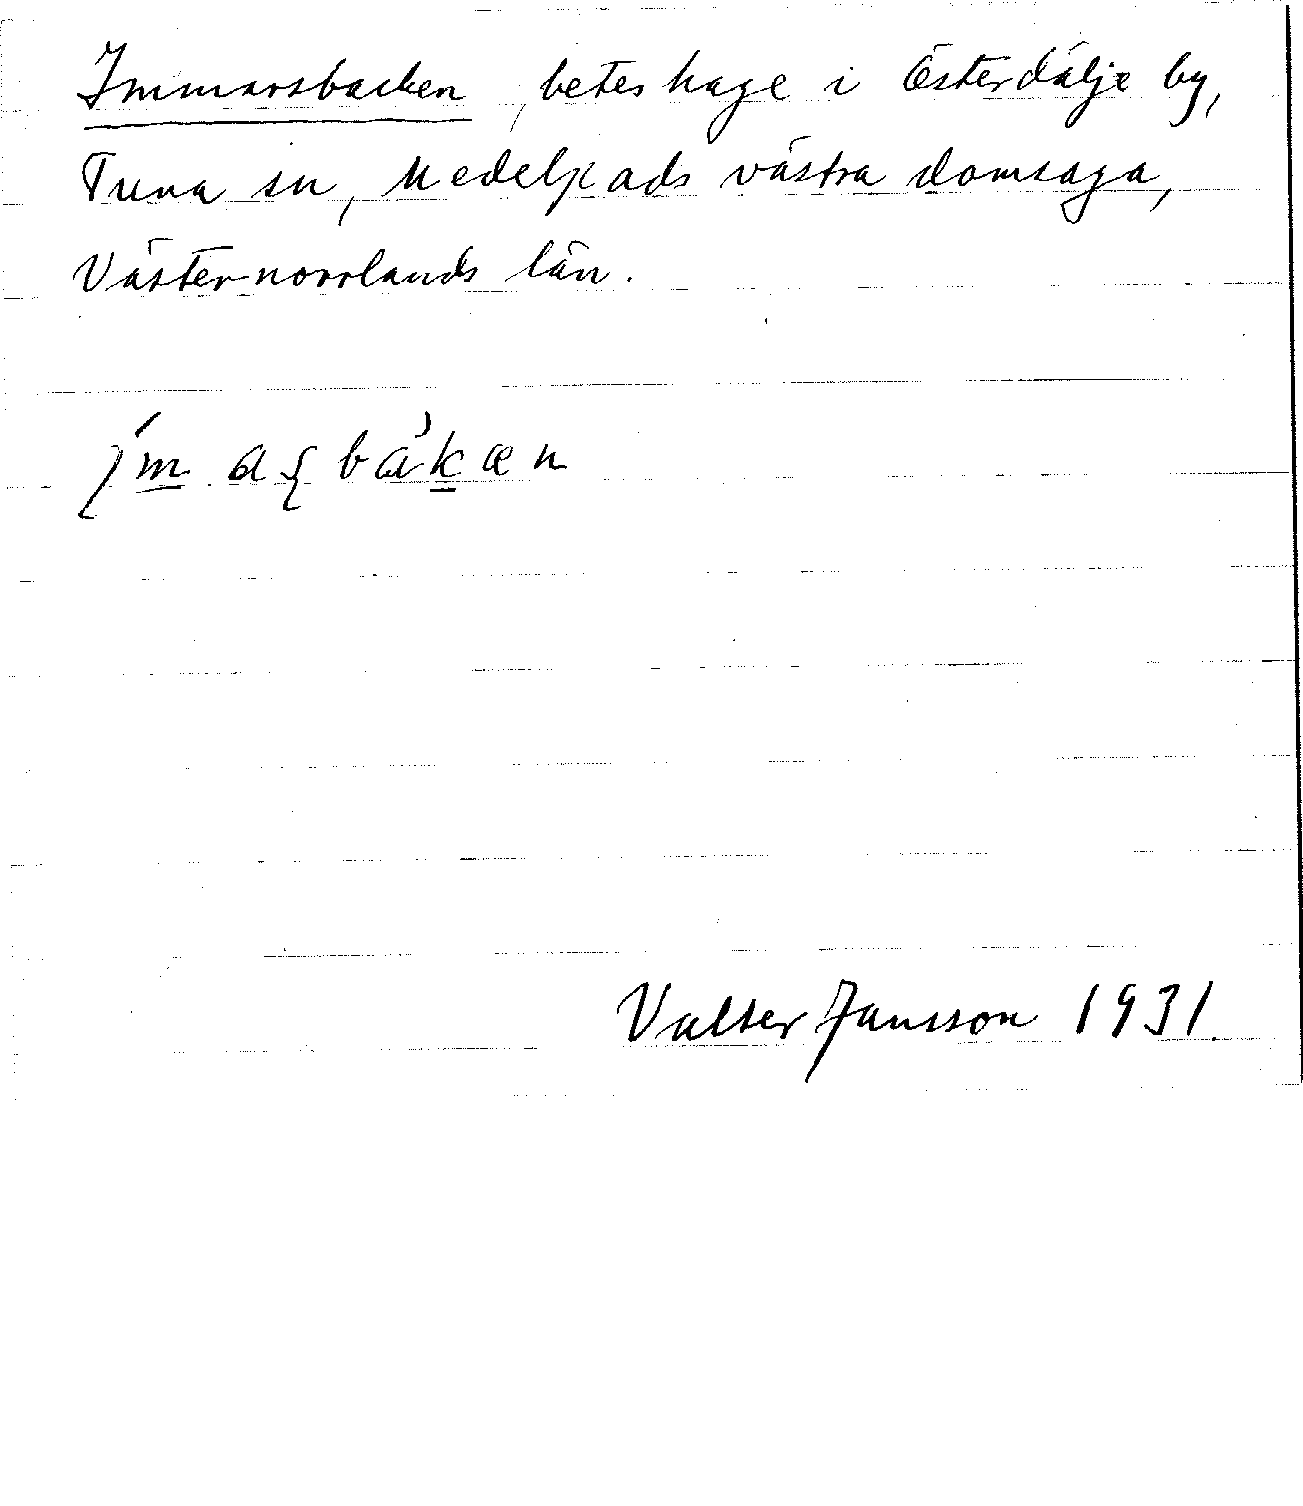 Immarsbacken, beteshage i Österdälje by,
Tuna sn, Medelpads västra domsaga,
Västernorrlands län.
Valter Jansson 1931.